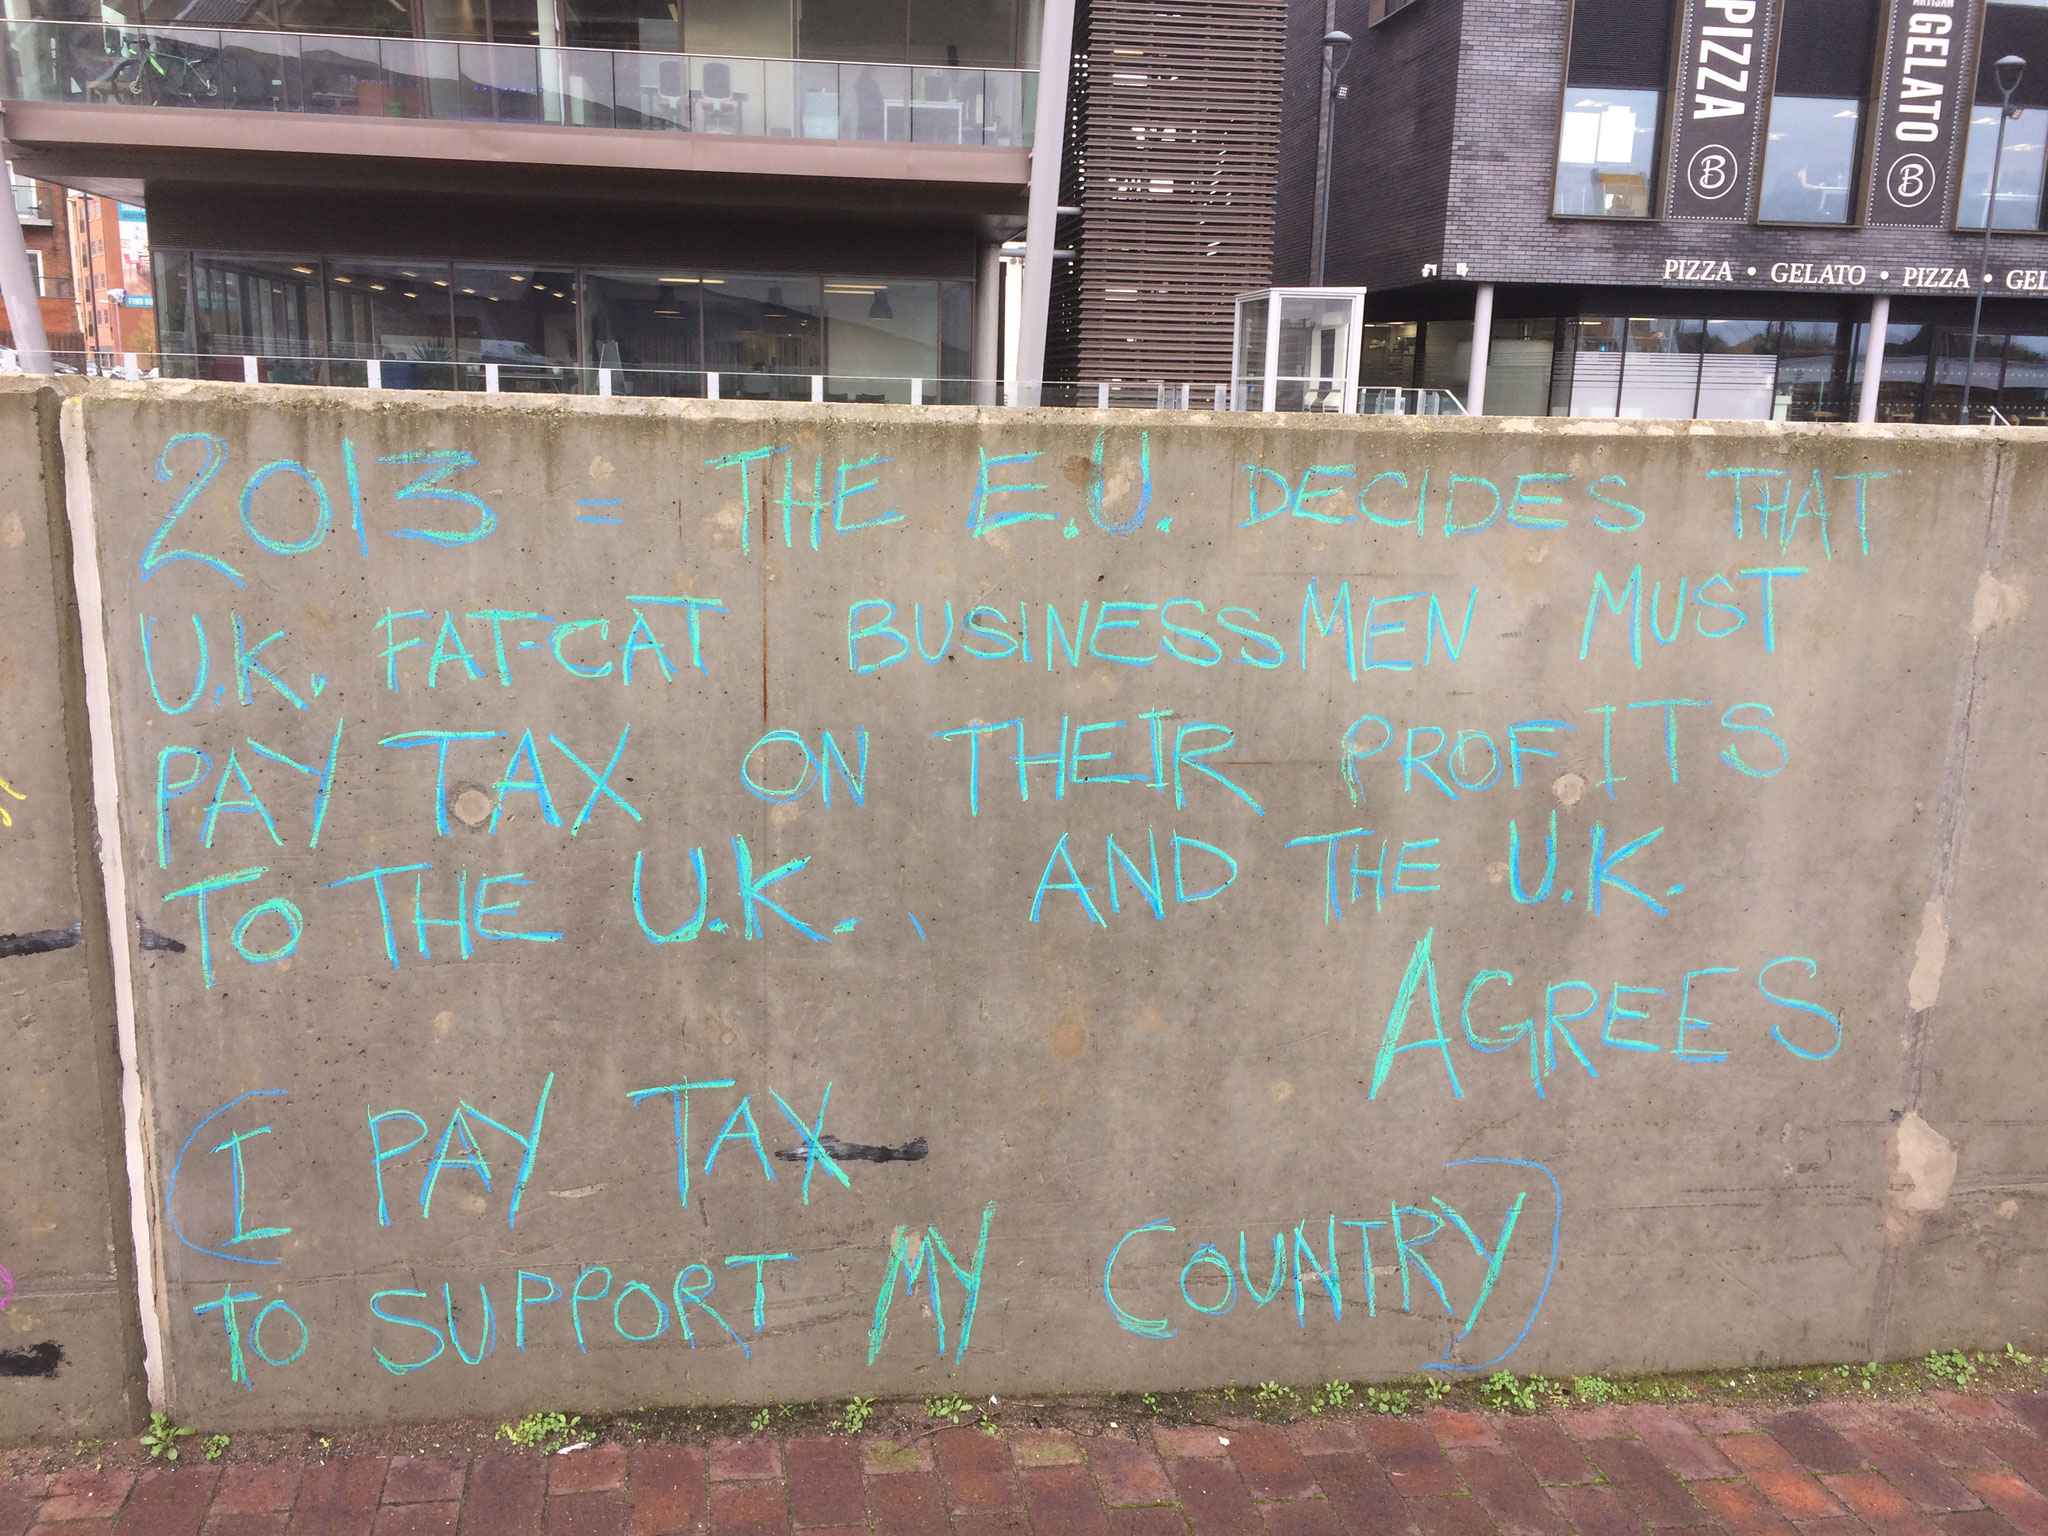 PIZZA
B
ARTISAN GELATO
B
PIZZA • GELATO • PIZZA • GEL
2013 = THE E.U. DECIDES THAT
U.K. FAT-CAT BUSINESSMEN MUST
PAY TAX ON THEIR PROFITS
TO THE U.K., AND THE U.K.
AGREES
(I PAY TAX
TO SUPPORT MY COUNTRY)